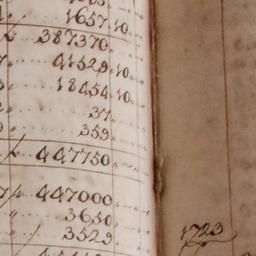 1657.10.
387370.
41529.10.
18454.10.
37.
359.
447750.
447000.
3650.
3529.
1723